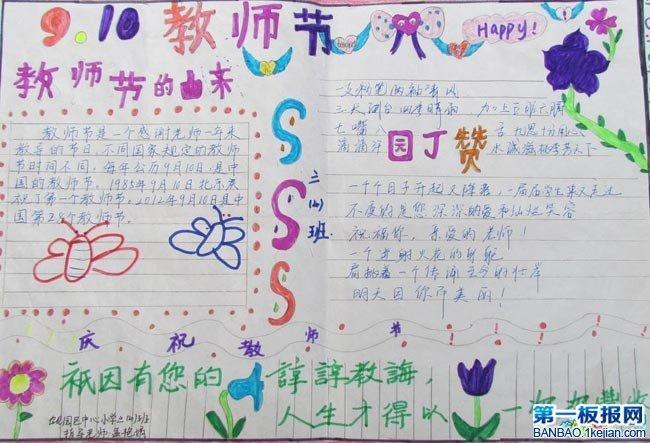 9.10 教师节
Happy!
教师节的由来
教师节是一个感谢老师一年来
教导的节日,不同国家规定的教师
节时间不同,每年公历9月10日,是中
国的教师节。1985年9月10日北京庆
祝了第一个教师节。2012年9月10日是中
国第28个教师节。
S
S
S
三(4)班
一支粉笔两袖清风
三尺讲台 四季晴雨 加上五班六腑
七嘴八
滴滴汗
园丁赞
水滋润桃李芳天下
一个个日子升起又降落,一届届学生来又走过
不变的是您深深的爱和灿烂笑容
祝福你,亲爱的老师!
肩挑着一个传诵文分的壮岸
明天因你而美丽!
庆祝教师节
祇因有您的
諄諄教誨,
人生才得以
指导老师:
第一板报网
BANBAO.1kejian.com